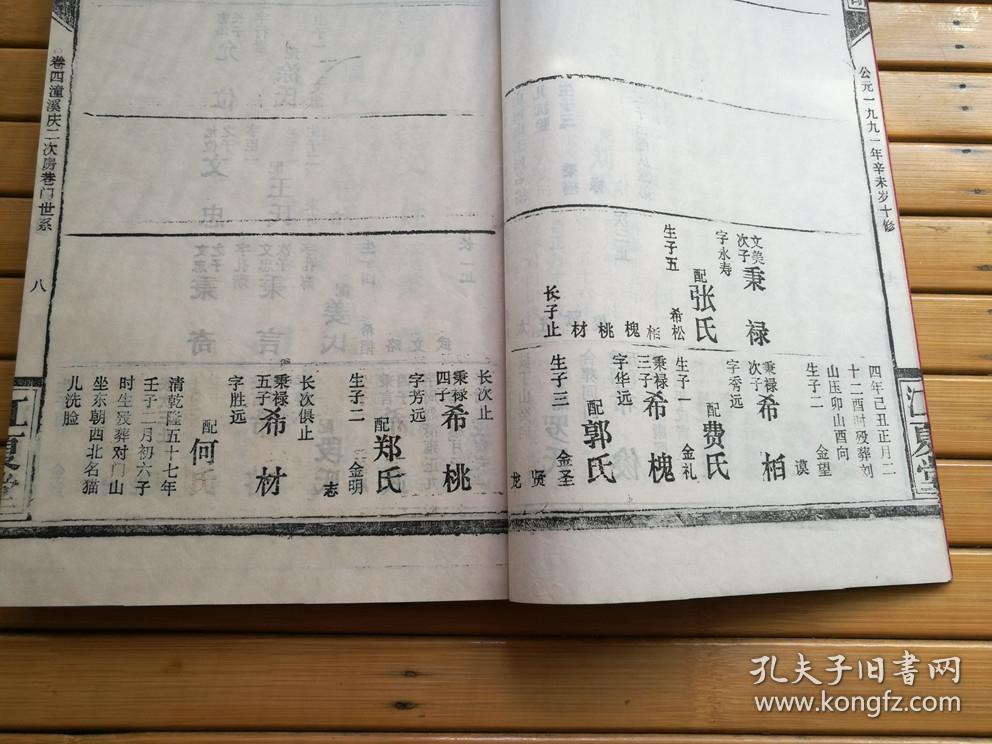 公元一九九一年辛未岁十修
江夏堂
文美次子
秉禄
字永寿
配张氏
生子五
希松
柏
槐
桃
材
长子止
四年己丑正月二
十二酉时殁葬刘
山压卯山酉向
生子二
金望
谟
秉禄次子
希柏
字秀远
配费氏
生子一
金礼
秉禄三子
希槐
字华远
配郭氏
生子三
金圣
贤
龙
长次止
秉禄四子
希桃
字芳远
配郑氏
生子二
金明
志
长次俱止
秉禄五子
希材
字胜远
配何氏
清乾隆五十七年
壬子二月初六子
时生殁葬对门山
坐东朝西北名猫
儿洗脸
卷四潼溪庆二次房巷门世系
八
江夏堂
孔夫子旧书网
www.kongfz.com